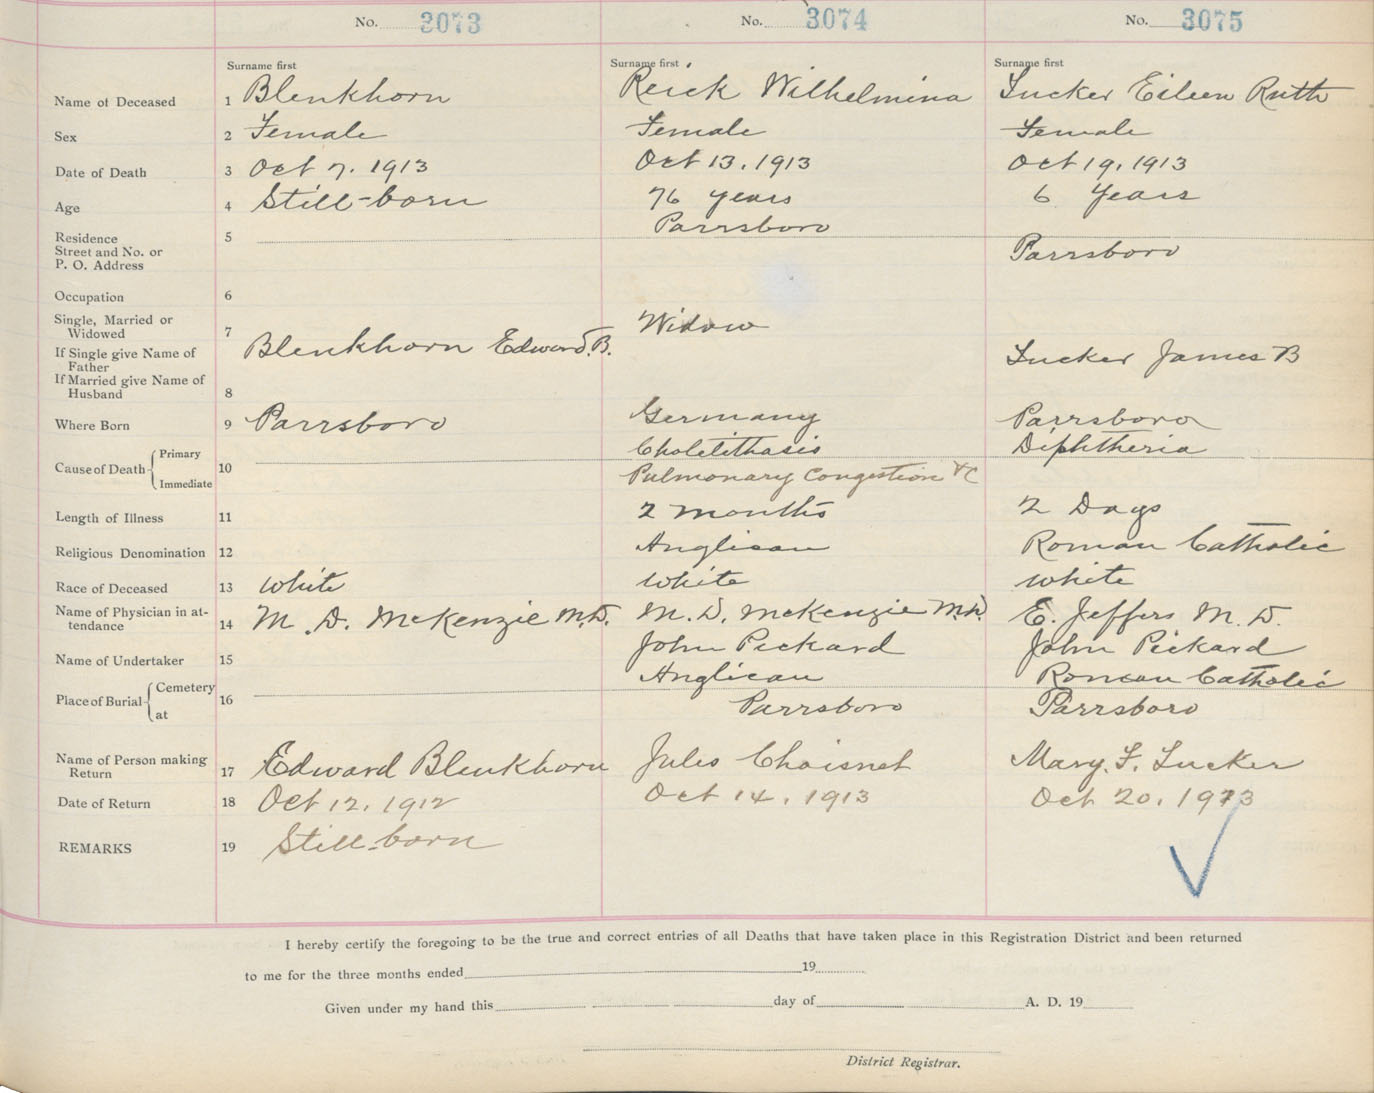 No. 3073 No. 3074 No. 3075
Surname first Surname first Surname first
Name of Deceased 1 Blenkhorn Reick Wilhelmina Tucker Eileen Ruth
Sex 2 Female Female Female
Date of Death 3 Oct 7. 1913 Oct 13. 1913 Oct 19. 1913
Age 4 Still-born 76 years 6 Years
Residence 5 Parrsboro
Street and No. or
P. O. Address Parrsboro
Occupation 6
Single, Married or
Widowed 7 Widow
If Single give Name of
Father Blenkhorn Edward. B. Tucker James B
If Married give Name of
Husband 8
Where Born 9 Parrsboro Germany Parrsboro
Cause of Death Primary 10 Cholelithasis Diphtheria
Immediate Pulmonary Congestion &c
Length of Illness 11 2 months 2 Days
Religious Denomination 12 Anglican Roman Catholic
Race of Deceased 13 White White White
Name of Physician in at-
tendance 14 M. D. McKenzie M.D. M. D. McKenzie M.D. E. Jeffers M. D.
Name of Undertaker 15 John Pickard John Pickard
Place of Burial Cemetery 16 Anglican Roman Catholic
at Parrsboro Parrsboro
Name of Person making
Return 17 Edward Blenkhorn Jules Choisnet Mary. F. Tucker
Date of Return 18 Oct 12. 1912 Oct 14. 1913 Oct 20. 1913
REMARKS 19 Still-born
I hereby certify the foregoing to be the true and correct entries of all Deaths that have taken place in this Registration District and been returned
to me for the three months ended 19
Given under my hand this day of A. D. 19
District Registrar.